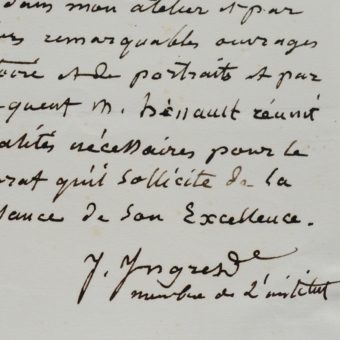 dans mon atelier et par
remarquables ouvrages
et de portraits et par
quent M. hénault réunit
alités nécessaires pour le
rat qu'il sollicite de la
sance de son Excellence.
J. Ingres
membre de L'institut